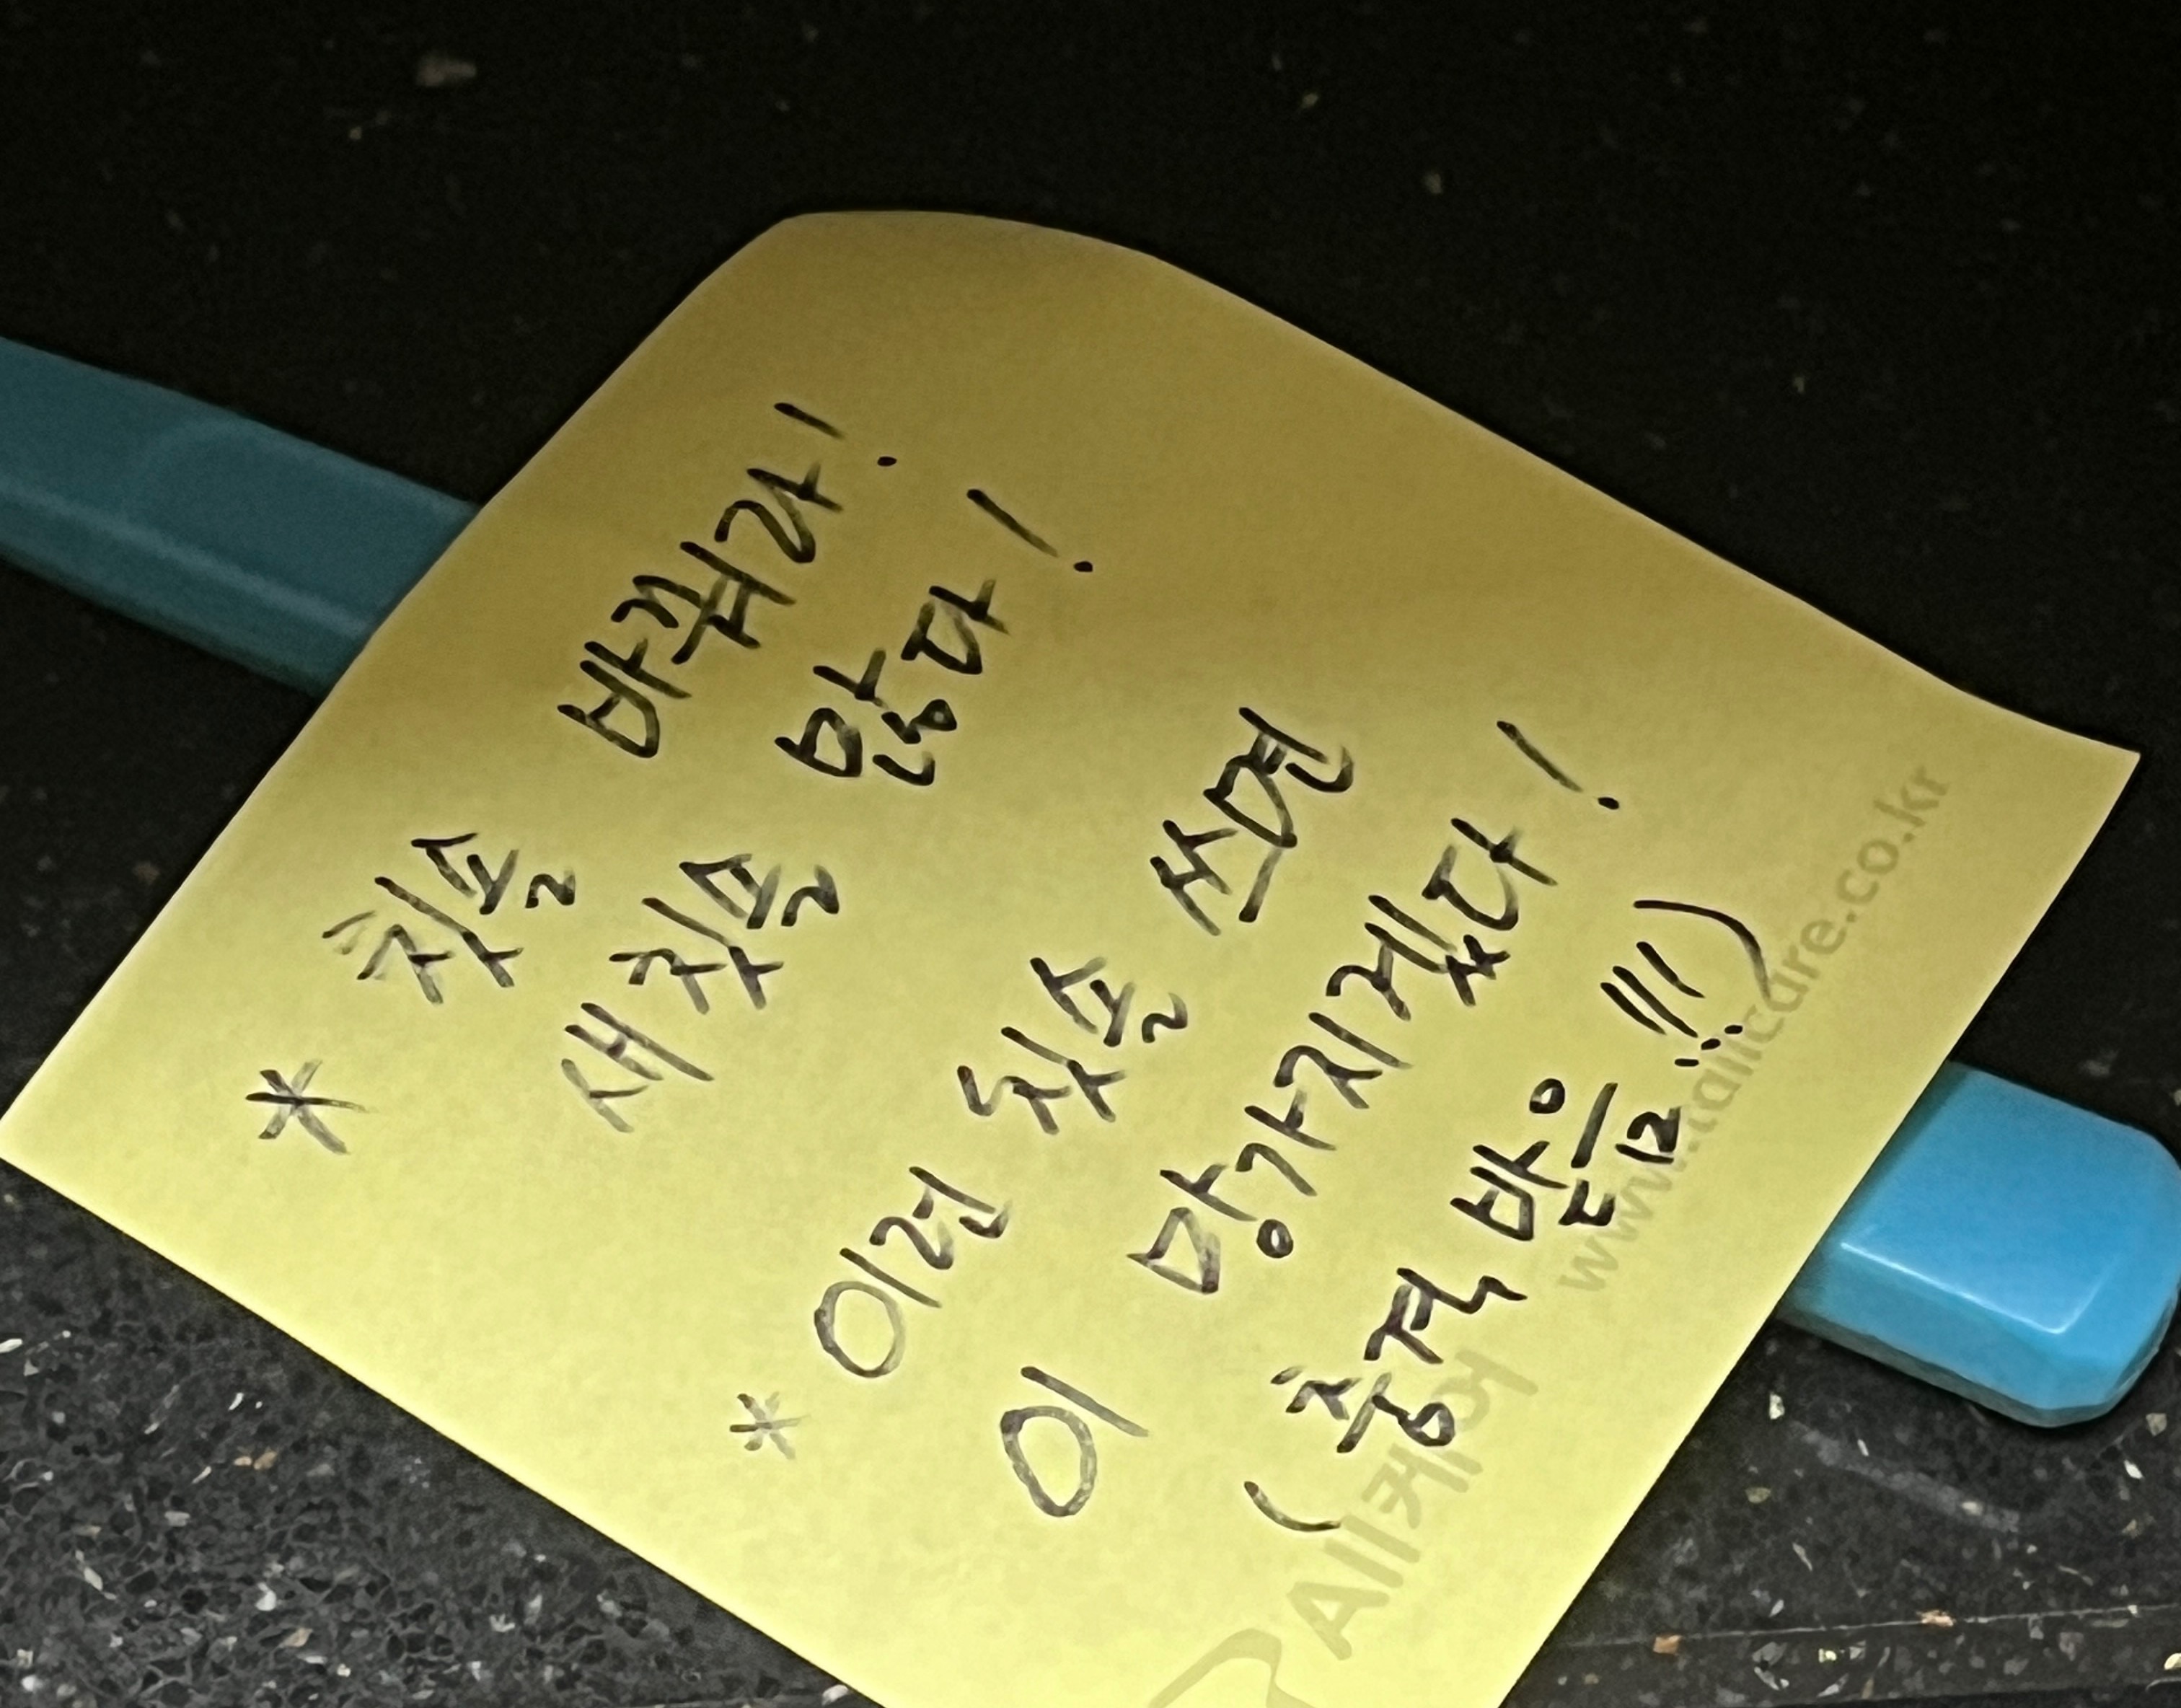 * 칫솔 바꿔라!
새 칫솔 많다!
* 이런 칫솔 쓰면
이 망가지겠다!
(충격 받은 1인 !!!)
All케어
www.allcare.co.kr